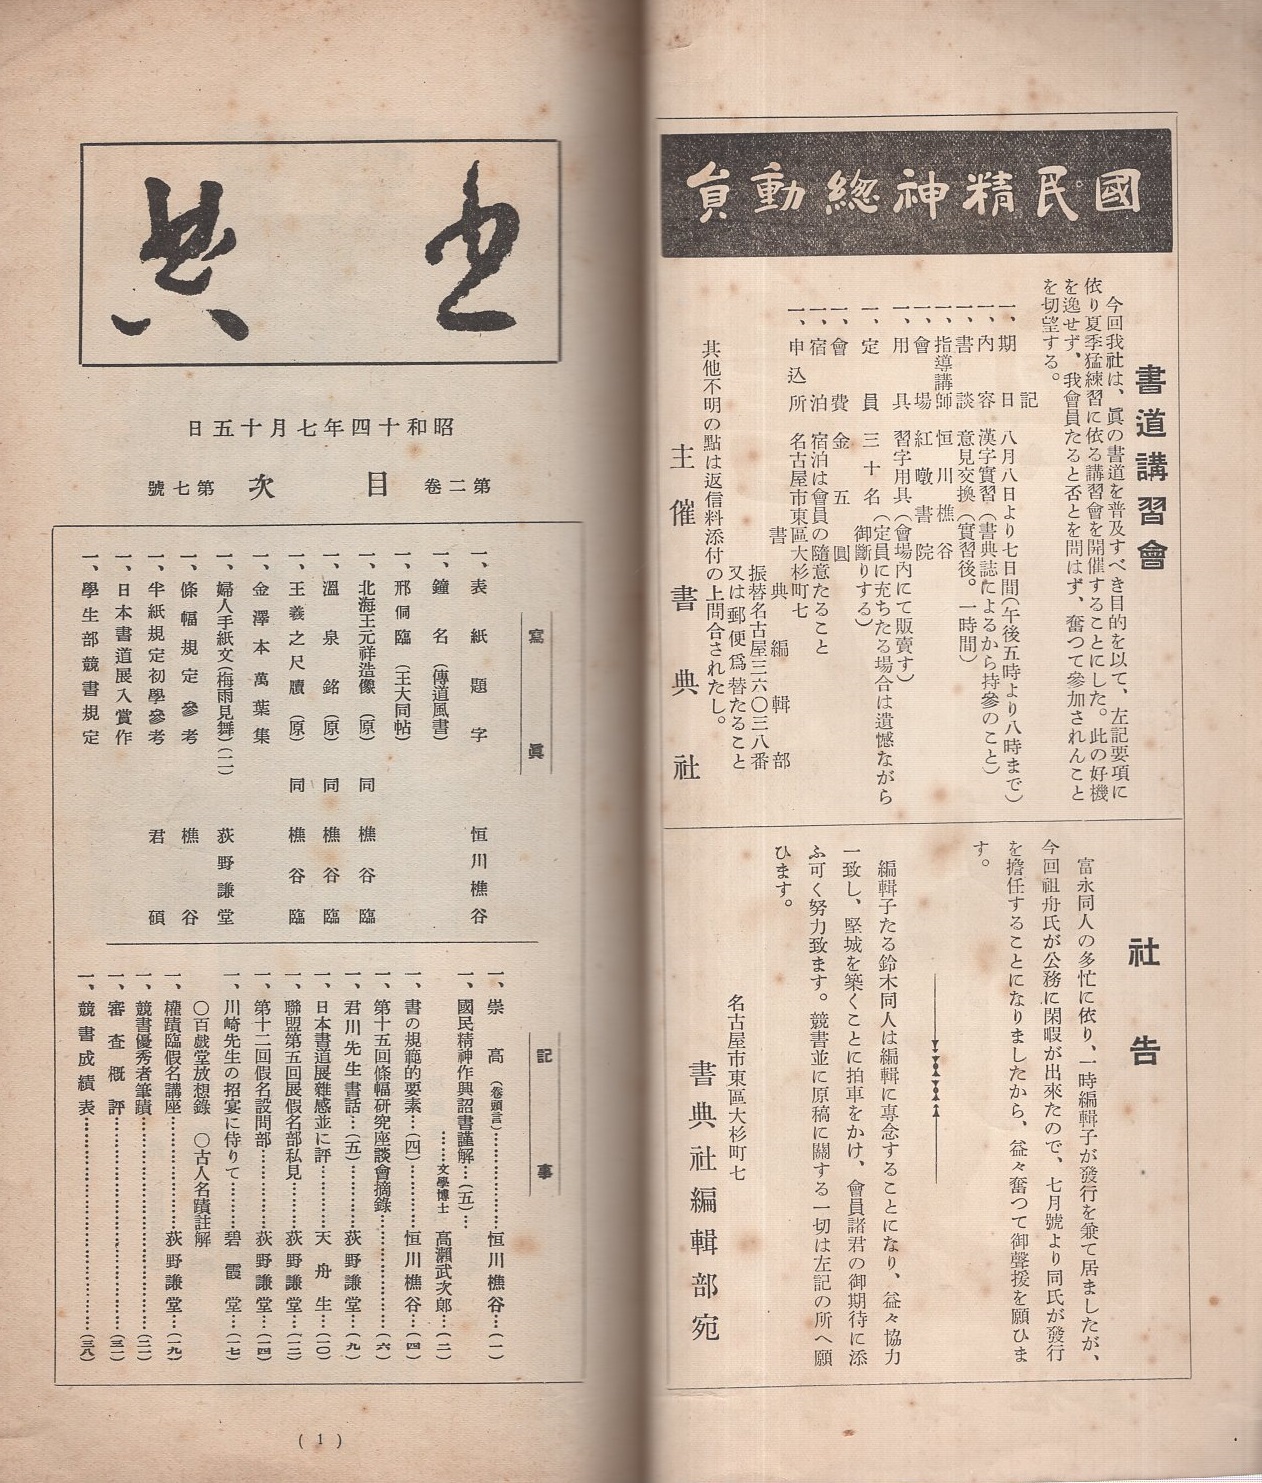 國民精神總動員
書道講習會
今回我社は、眞の書道を普及すべき目的を以て、左記要項に
依り夏季猛練習に依る講習會を開催することにした。此の好機
を逸せず、我會員たると否とを問はず、奮つて參加されんこと
を切望する。
記
一、期日　八月八日より七日間(午後五時より八時まで)
一、內容　漢字實習(書典誌によるから持參のこと)
一、書談　意見交換(實習後。一時間)
一、指導講師　恒川樵谷
一、會場　紅暾書院
一、用具　習字用具(會場內にて販賣す)
一、定員　三十名(定員に充ちたる場合は遺憾ながら
御斷りする)
一、會費　金五圓
一、宿泊　宿泊は會員の隨意たること
一、申込所　名古屋市東區大杉町七
書典編輯部
振替名古屋三六〇三八番
又は郵便爲替たること
其他不明の點は返信料添付の上問合されたし。
主催　書典社
社告
富永同人の多忙に依り、一時編輯子が發行を兼て居ましたが、
今回祖舟氏が公務に閑暇が出來たので、七月號より同氏が發行
を擔任することになりましたから、益々奮つて御聲援を願ひま
す。
編輯子たる鈴木同人は編輯に專念することになり、益々協力
一致し、堅城を築くことに拍車をかけ、會員諸君の御期待に添
ふ可く努力致ます。競書並に原稿に關する一切は左記の所へ願
ひます。
名古屋市東區大杉町七
書典社編輯部宛
書典
昭和十四年七月十五日
第二卷　目次　第七號
寫眞
一、表紙題字　恒川樵谷
一、鐘名(傳道風書)
一、邢侗臨(王大同帖)
一、北海王元祥造像(原)同　樵谷臨
一、溫泉銘(原)同　樵谷臨
一、王羲之尺牘(原)同　樵谷臨
一、金澤本萬葉集
一、婦人手紙文(梅雨見舞)(二)　荻野謙堂
一、條幅規定參考　樵谷
一、半紙規定初學參考　君碩
一、日本書道展入賞作
一、學生部競書規定
記事
一、崇高(卷頭言)…………恒川樵谷…(一)
一、國民精神作興詔書謹解…(五)…
……文學博士　高瀨武次郞…(二)
一、書の規範的要素…(四)………恒川樵谷…(四)
一、第十五回條幅硏究座談會摘錄…………(六)
一、君川先生書話…(五)………荻野謙堂…(九)
一、日本書道展雜感並に評………天舟生…(一〇)
一、聯盟第五回展假名部私見………荻野謙堂…(一二)
一、第十二回假名設問部…………荻野謙堂…(一四)
一、川崎先生の招宴に侍りて………碧霞堂…(一七)
〇百戲堂放想錄　〇古人名蹟註解
一、權蹟臨假名講座……………荻野謙堂…(一九)
一、競書優秀者筆蹟…………………(二一)
一、審査槪評……………………(三一)
一、競書成績表……………………(三八)
( 1 )